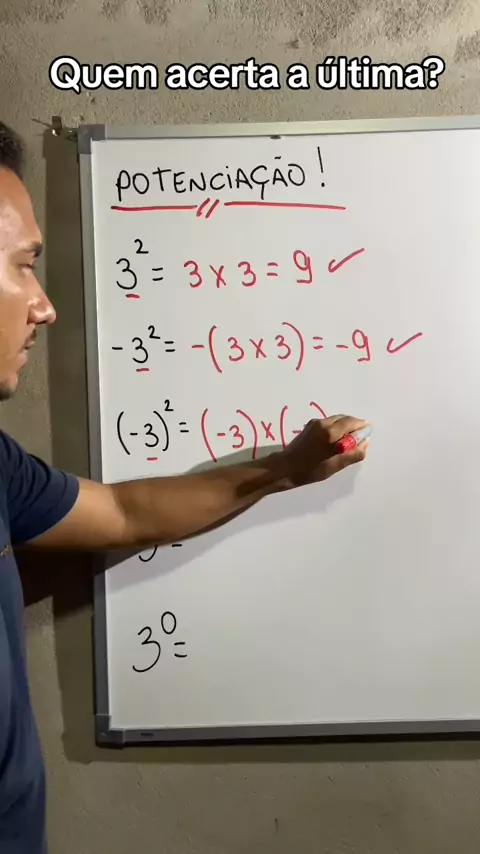 Quem acerta a última?
POTENCIAÇÃO!
3² = 3 x 3 = 9 ✓
-3² = -(3 x 3) = -9 ✓
(-3)² = (-3) x (-
3⁰ =